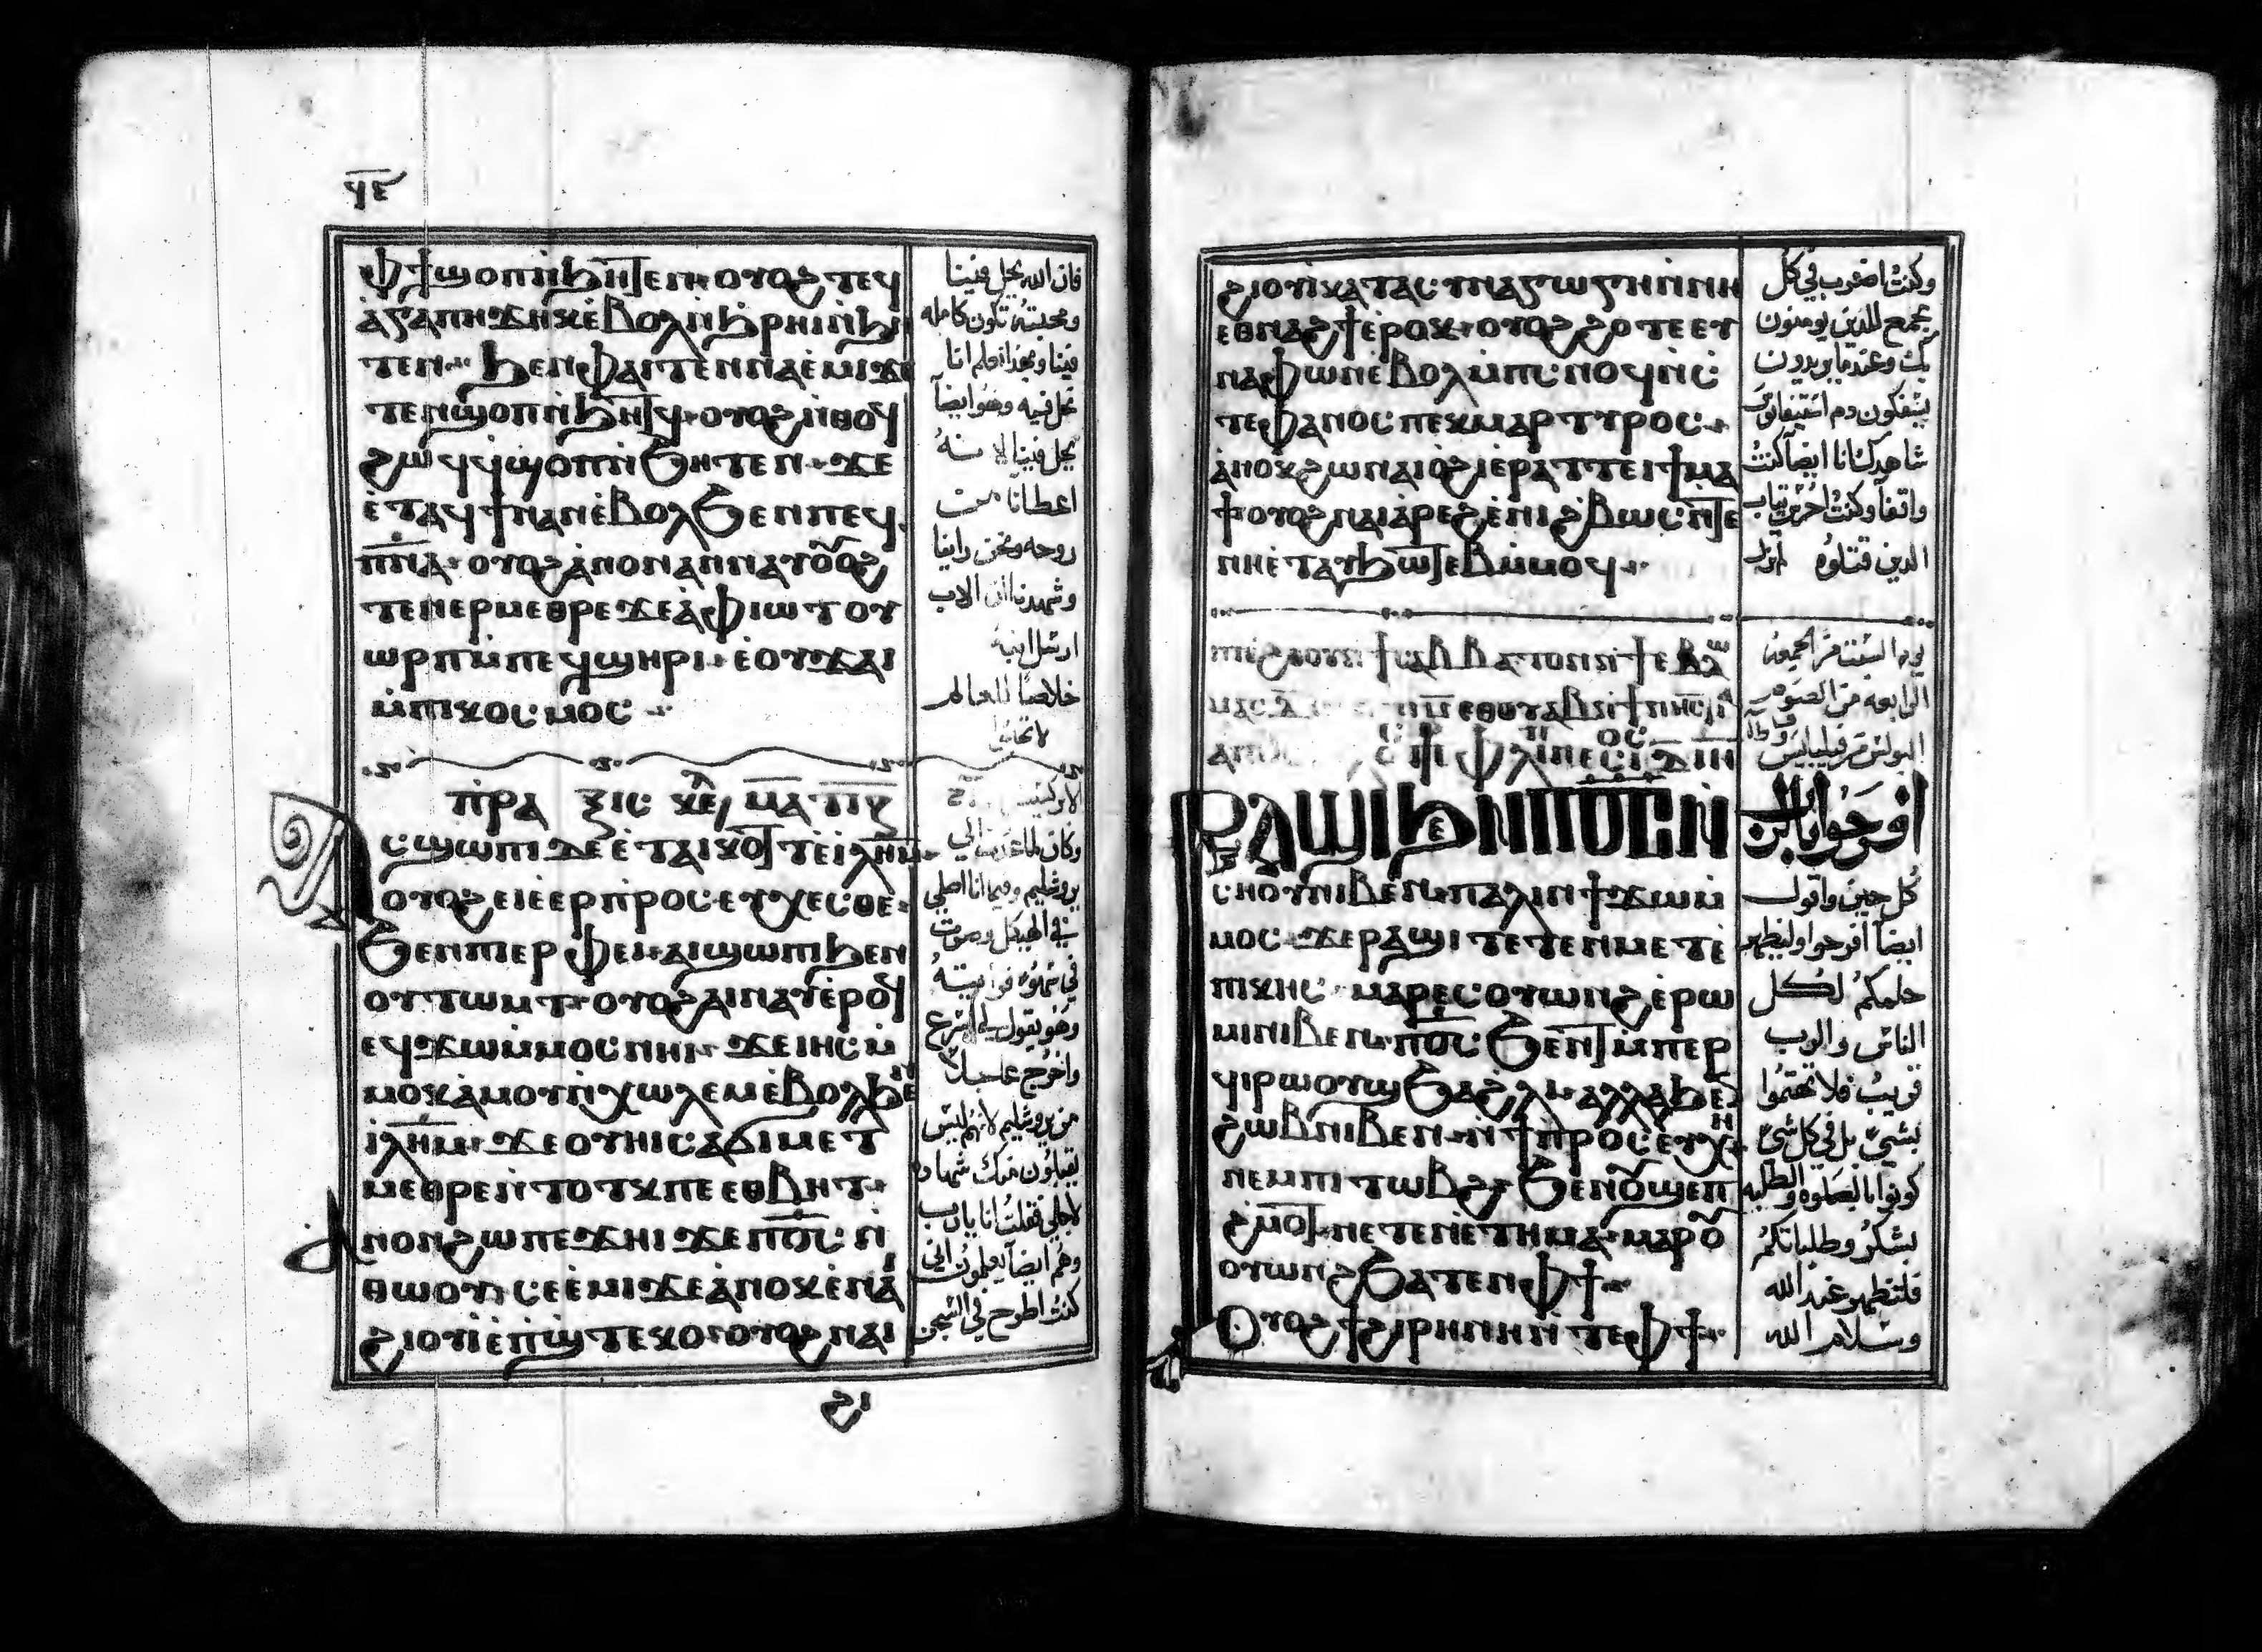 ϥⲉ
ⲫϯϣⲟⲡⲛ̀ϧⲏⲧⲉⲛ· ⲟⲩⲟϩ ⲧⲉϥ
ⲁ̀ⲅⲁⲡⲏ ϫⲏⲕ ⲉ̀ⲃⲟⲗ ⲛ̀ϧⲣⲏⲓ ⲛ̀ϧⲏ
ⲧⲉⲛ· ϧⲉⲛ ⲫⲁⲓ ⲧⲉⲛⲛⲁⲉ̀ⲙⲓ ϫⲉ
ⲧⲉⲛϣⲟⲡ ⲛ̀ϧⲏⲧϥ· ⲟⲩⲟϩ ⲛ̀ⲑⲟϥ
ϩⲱϥ ϥϣⲟⲡ ⲛ̀ϧⲏⲧⲉⲛ· ϫⲉ
ⲉ̀ⲧⲁϥϯ ⲛⲁⲛ ⲉ̀ⲃⲟⲗ ϧⲉⲛ ⲡⲉϥ
ⲡ̅ⲛ̅ⲁ̅· ⲟⲩⲟϩ ⲁ̀ⲛⲟⲛ ⲁⲛⲛⲁⲩ ⲟⲩⲟϩ
ⲧⲉⲛⲉⲣⲙⲉⲑⲣⲉ ϫⲉ ⲁ̀ⲫⲓⲱⲧ ⲟⲩ
ⲱⲣⲡ ⲙ̀ⲡⲉϥϣⲏⲣⲓ· ⲉ̀ⲟⲩϫⲁⲓ
ⲙ̀ⲡⲓⲕⲟⲥⲙⲟⲥ
ⲡ̀ⲣⲁ ⲝⲓⲥ ⲕⲉ̅ⲫ ⲙ̅ⲁ̅
ⲁⲥϣⲱⲡⲓ ⲇⲉ ⲉ̀ⲧⲁⲓⲕⲟⲧ ⲧⲉⲓ̀ⲗ̅ⲏ̅ⲙ̅
ⲟⲩⲟϩ ⲉⲓⲉ̀ⲉⲣⲡ̀ⲣⲟⲥⲉⲩⲭⲉⲥⲑⲉ
ϧⲉⲛ ⲡⲓⲉⲣⲫⲉⲓ· ⲁⲓϣⲱⲡⲓ ϧⲉⲛ
ⲟⲩⲧⲱⲙⲧ· ⲟⲩⲟϩ ⲁⲓⲛⲁⲩ ⲉ̀ⲣⲟϥ
ⲉϥϫⲱ ⲙ̀ⲙⲟⲥ ⲛⲏⲓ· ϫⲉ ⲓⲏⲥ ⲙ̀
ⲙⲟⲕ ⲁ̀ⲙⲟⲩ ⲛ̀ⲭⲱⲗⲉⲙ ⲉ̀ⲃⲟⲗ ϧⲉⲛ
ⲓ̀ⲗ̅ⲏ̅ⲙ̅· ϫⲉ ⲟⲩⲏⲓ ⲥⲁϭⲓ ⲙⲉⲧ
ⲙⲉⲑⲣⲉ ⲛ̀ⲧⲟⲧⲕ ⲡⲉ ⲉⲑⲃⲏⲧ·
ⲁⲛⲟⲛ ϩⲱ ⲡⲉϫⲏⲓ ϫⲉ ⲡ̅ⲟ̅ⲥ̅ ⲛ̀
ⲑⲱⲟⲩ ⲥⲉⲉ̀ⲙⲓ ϫⲉ ⲁ̀ⲛⲟⲕ ⲉ̀ⲛⲁ
ϩⲓⲟⲩⲓ̀ ⲉ̀ⲡ̀ϣⲧⲉⲕⲟ· ⲟⲩⲟϩ ⲛⲁⲓ
ϩⲓ
فان الله يحل فينا
ومحبته تكون كامله
فينا وبهذا نعلم اننا
نحل فيه وهو ايضاً
يحل فينا لانه
اعطانا من
روحه ونحن راينا
وشهدنا ان الاب
ارسل ابنه
خلاصًا للعالم
وكان لما عدت الي
يروشليم وفيما انا اصلي
في الهيكل وصرت
في سهوه فرايته
وهو يقول لي اسرع
واخرج عاجلاً
من يروشليم لانهم ليس
يقبلون منك شهاده
لاجلي فقلت انا يارب
وهم ايضاً يعلمون اني
كنت اطرح في السجن
ϩⲓⲟⲩⲓ̀ ⲕⲁⲧⲁ ⲥⲩⲛⲁⲅⲱⲅⲏ ⲛ̀ⲛⲏ
ⲉⲑⲛⲁϩϯ ⲉ̀ⲣⲟⲕ· ⲟⲩⲟϩ ϩⲟⲧⲉ ⲉⲩ
ⲛⲁⲫⲱⲛ ⲉ̀ⲃⲟⲗ ⲙ̀ⲡⲥⲛⲟϥ ⲛ̀ⲥ
ⲧⲉⲫⲁⲛⲟⲥ ⲡⲉⲕⲙⲁⲣⲧⲩⲣⲟⲥ·
ⲁ̀ⲛⲟⲕ ϩⲱ ⲛⲁⲓⲟ̀ϩⲓ ⲉ̀ⲣⲁⲧ ⲧⲉⲓϯⲙⲁ
ϯ ⲟⲩⲟϩ ⲛⲁⲓⲁ̀ⲣⲉϩ ⲉ̀ⲛⲓϩⲃⲱⲥ ⲛ̀ⲧⲉ
ⲛⲏ ⲉ̀ⲧⲁⲩϧⲱⲧⲉⲃ ⲙ̀ⲙⲟϥ·
ⲣⲁϣⲓ ϧⲉⲛ ⲡ̅ⲟ̅ⲥ̅ ⲛ̀
ⲥⲏⲟⲩ ⲛⲓⲃⲉⲛ· ⲡⲁⲗⲓⲛ ϯϫⲱ ⲙ̀
ⲙⲟⲥ ϫⲉ ⲣⲁϣⲓ ⲧⲉⲧⲉⲛⲙⲉⲧⲉ̀
ⲡⲓⲕⲏⲥ· ⲙⲁⲣⲉⲥⲟⲩⲱⲛϩ ⲉ̀ⲣⲱ
ⲙⲓ ⲛⲓⲃⲉⲛ· ⲡ̅ⲟ̅ⲥ̅ ϧⲉⲛⲧ ⲙ̀ⲡⲉⲣ
ϥⲓⲣⲱⲟⲩϣ ϧⲁϩⲗⲓ· ⲁⲗⲗⲁ ϧⲉⲛ
ϩⲱⲃ ⲛⲓⲃⲉⲛ· ⲛ̀ϯⲡ̀ⲣⲟⲥⲉⲩⲭⲏ
ⲛⲉⲙ ⲡⲓⲧⲱⲃϩ· ϧⲉⲛ ⲟⲩϣⲉⲡ
ϩ̀ⲙⲟⲧ· ⲛⲉⲧⲉⲛⲉ̀ⲧⲏⲙⲁ· ⲙⲁⲣⲟⲩ
ⲟⲩⲱⲛϩ ϧⲁⲧⲉⲛ ⲫϯ·
ⲟⲩⲟϩ ϯϩⲓⲣⲏⲛⲏ ⲛ̀ⲧⲉ ⲫϯ·
وكنت اضرب في كل
مجمع للذين يومنون
بك وعندما يريدون
يسفكون دم استيفانوس
شاهدك انا ايضاً كنت
واقفاً وكنت احرس ثياب
الذين قتلوه
يوم السبت من الجمعه
الرابعه من الصوم
البولس من فيليبيس
افرحوا بالرب
كل حين واقول
ايضاً افرحوا وليظهر
حلمكم لكل
الناس والرب
قريب فلا تهتموا
بشيء بل في كل شيء
كونوا بالصلوه والطلبه
بشكر وطلباتكم
فلتظهر عند الله
وسلام الله